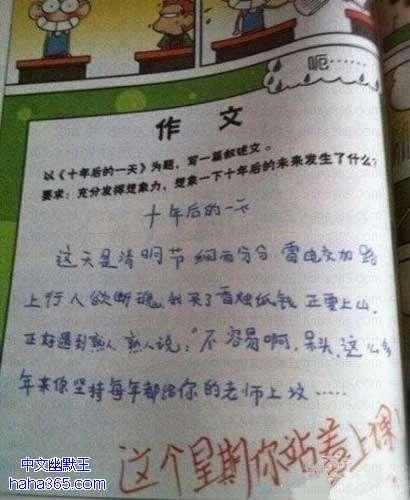 呃……
作文
以《十年后的一天》为题，写一篇叙述文。
要求：充分发挥想象力，想象一下十年后的未来发生了什么？
十年后的一天
这天是清明节 细雨分分 雷电交加 路
上行人欲断魂，我买了香烛纸钱 正要上山，
正好遇到熟人 熟人说："不容易啊，呆头，这么多
年来你坚持每年都给你的老师上坟……
这个星期你站着上课！
中文幽默王
haha365.com